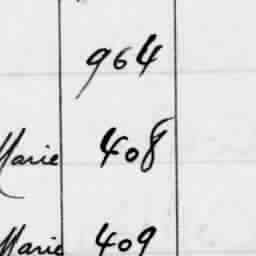 964
Marie 408
Marie 409